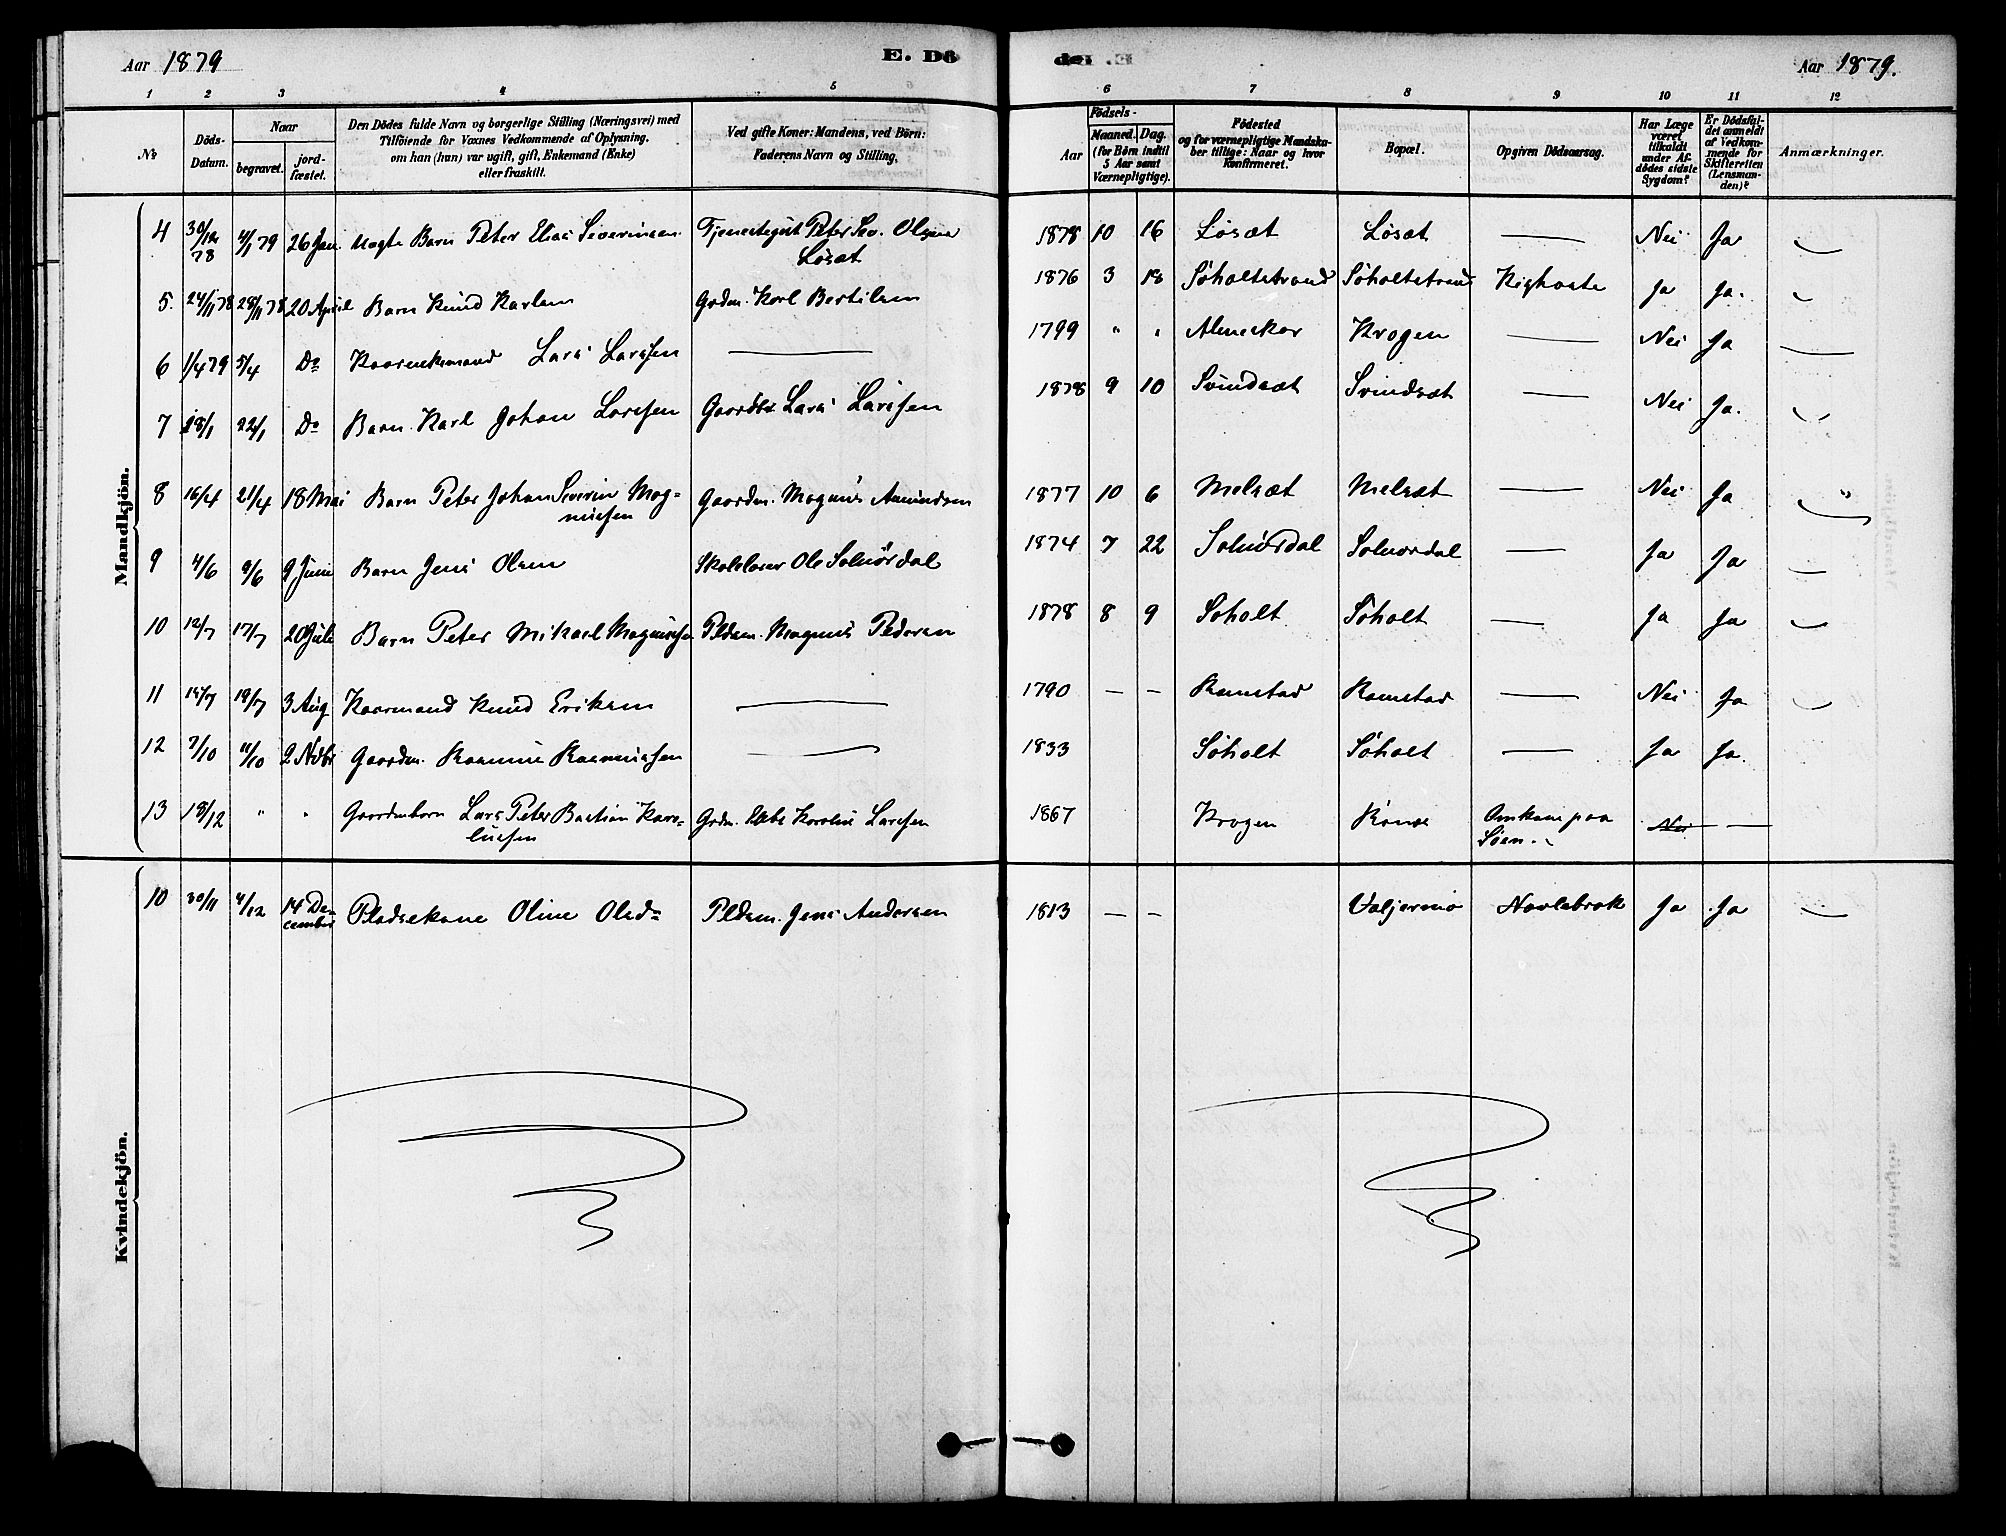 Aar 1879
E. Dö
E. de
Aar 1879.
1 2 3 4 5 6 7 8 9 10 11 12
No
Döds-Datum.
Naar
begravet.
jord-fæstet.
Den Dödes fulde Navn og borgerlige Stilling (Næringsvei) med
Tilföiende for Voxnes Vedkommende af Oplysning,
om han (hun) var ugift, gift, Enkemand (Enke)
eller fraskilt.
Ved gifte Koner: Mandens, ved Börn:
Faderens Navn og Stilling.
Födsels-
Aar
Maaned. Dag.
(for Börn indtil
5 Aar samt
Værnepligtige).
Födested
og for værnepligtige Mandskaber tillige: Naar og hvor
Konfirmeret.
Bopæl.
Opgiven Dödsaarsag.
Har Læge
været
tilkaldt
under Afdödes sidste
Sygdom?
Er Dödsfaldet anmeldt
af Vedkommende for
Skifteretten
(Lensmanden)?
Anmærkninger.
Mandkjön.
4 30/12 78 4/1 79 26 Jan Uægte Barn Peter Elias Severinsen Tjenestegut Peter Sev. Olsen Løsæt 1878 10 16 Løsæt Løsæt — Nei Ja —
5. 24/11 78 28/11 78 20 April Barn Knud Karlsen Grdm. Karl Bertilsen 1876 3 18 Søholtstrand Søholtstrand Kighoste Ja Ja. —
6 1/4 79 5/4 Do Kaarenkemand Lars Larssen — 1799 " " Almeskar Krogen — Nei Ja —
7 18/1 22/1 Do Barn Karl Johan Larssen Gaardbr. Lars Larssen 1878 9 10 Svindsæt Svindsæt — Nei Ja. —
8 16/4 21/4 18 Mai Barn Peter Johan Severin Mag=
nussen Gaardm. Magnus Amundsen 1877 10 6 Melsæt Melsæt — Nei Ja "
9 4/6 9/6 9 Juni Barn Jens Olsen Skolelærer Ole Solnørdal 1874 7 22 Solnørdal Solnørdal — Ja Ja —
10 12/7 17/7 20 Juli Barn Peter Mikael Magnussen Pldsm. Magnus Pedersen 1878 8 9 Søholt Søholt — Ja Ja —
11 15/7 19/7 3 Aug Kaarmand Knud Eriksen — 1790 — — Ramstad Ramstad — Nei Ja —
12 7/10 11/10 2 Novbr Gaardm. Rasmus Rasmussen — 1833 Søholt Søholt — Ja Ja.
13 18/12 " " Gaardmbarn Lars Peter Bastian Karo=
liussen Grdm. Karolius Larssen 1867 Krogen Omkom paa
Søen. Nei —
Kvindekjön.
10 30/11 4/12 14 De-
cember Pladsekone Oline Olsd= Pldsm. Jens Andersen 1813 — — Valjermo Navlebrok Ja Ja —